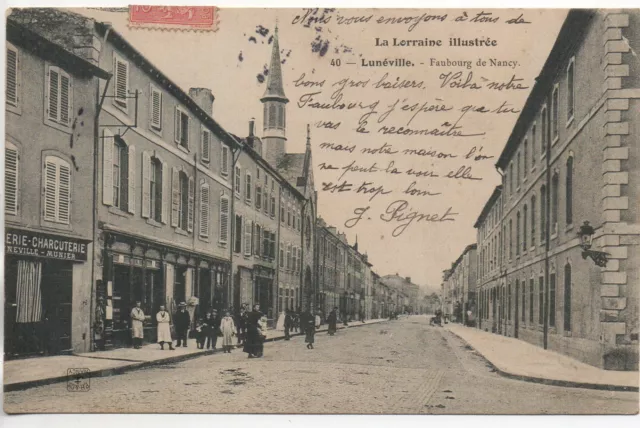 Nous vous envoyons à tous de
La Lorraine illustrée
40 — Lunéville. - Faubourg de Nancy.
bons gros baisers. Voilà notre
Faubourg j'espère que tu
vas le reconnaître
mais notre maison d'on
ne peut la voir elle
est trop loin
J. Pignet
ERIE-CHARCUTERIE
NEVILLE - MUNIER